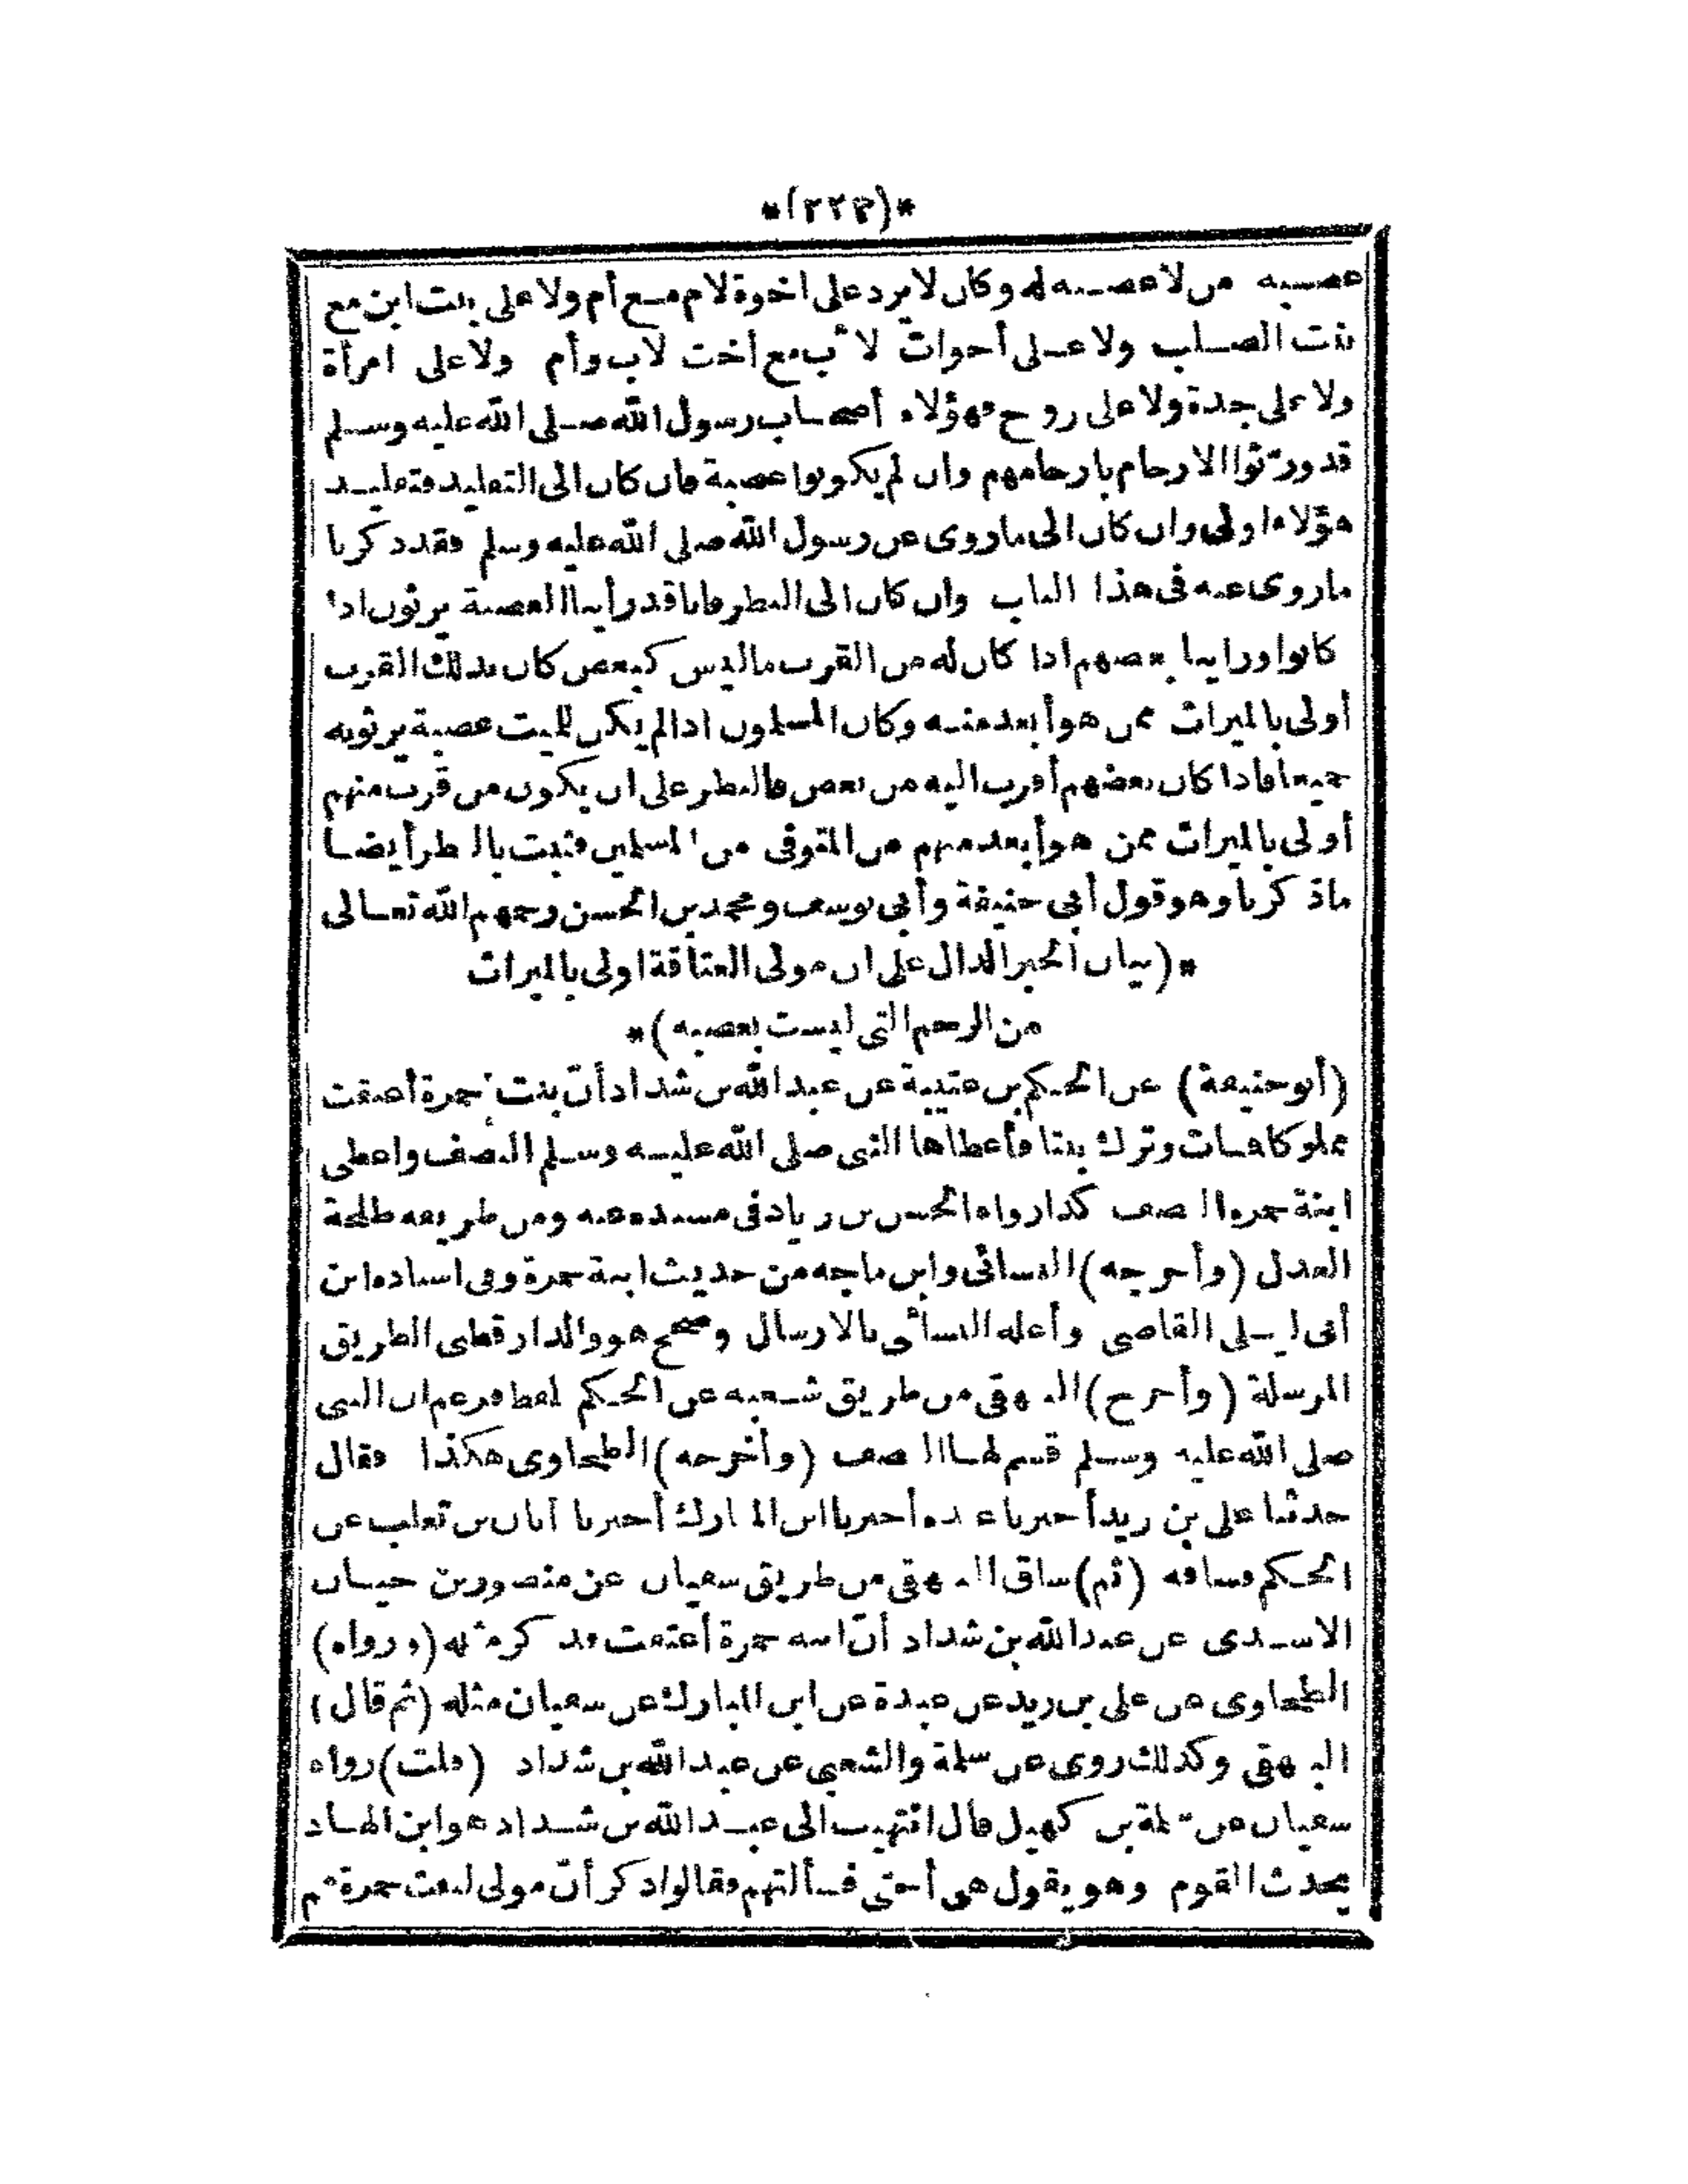 *(٢٢٣)*
عصبه من لا عصبة له وكان لا يرد على اخوة لام مع أم ولا على بنت ابن مع
بنت الصلب ولا على أخوات لأب مع أخت لاب وأم ولا على امرأة
ولا على جدة ولا على زوج فهؤلاء أصحاب رسول الله صلى الله عليه وسلم
قد ورّثوا الارحام بارحامهم وان لم يكونوا عصبة فان كان الى التقليد فتقليد
هؤلاء اولى وان كان الى ما روى عن رسول الله صلى الله عليه وسلم فقد ذكرنا
ما روى عنه فى هذا الباب وان كان الى النظر فانا قد رأينا العصبة يرثون اذا
كانوا ورأينا بعضهم اذا كان له من القرب ما ليس كبعض كان بذلك القرب
أولى بالميراث ممن هو أبعد منه وكان المسلمون اذا لم يكن للميت عصبة يرثونه
جميعا فاذا كان بعضهم أقرب اليه من بعض فالنظر على ان يكون من قرب منهم
أولى بالميراث ممن هو أبعد منهم من المتوفى من المسلمين فثبت بالنظر أيضا
ما ذكرنا وهو قول أبى حنيفة وأبى يوسف ومحمد بن الحسن رحمهم الله تعالى
*(بيان الخبر الدال على ان مولى العتاقة اولى بالميراث
من الرحم التى ليست بعصبه)*
(أبو حنيفة) عن الحكم بن عتيبة عن عبد الله بن شداد أنّ بنت حمزة أعتقت
مملوكا فمات وترك بنتا فأعطاها النبى صلى الله عليه وسلم النصف واعطى
ابنة حمزة النصف كذا رواه الحسن بن زياد فى مسنده عنه ومن طريقه طلحة
العدل (وأخرجه) النسائى وابن ماجه من حديث ابنة حمزة وفى اسناده ابن
أبى ليلى القاضى وأعله النسائى بالارسال وصحح هو والدارقطنى الطريق
المرسلة (وأخرج) البيهقى من طريق شعبه عن الحكم لفظ فزعم ان النبى
صلى الله عليه وسلم قسم لها النصف (وأخرجه) الطحاوى هكذا فقال
حدثنا على بن زيد أخبرنا عبده أخبرنا ابن المبارك أخبرنا أبان بن تغلب عن
الحكم فساقه (ثم) ساق البيهقى من طريق سفيان عن منصور بن حيان
الاسدى عن عبد الله بن شداد أنّ ابنه حمزة أعتقت فذكر مثله (ورواه)
الطحاوى عن على بن زيد عن عبدة عن ابن المبارك عن سفيان مثله (ثم قال)
البيهقى وكذلك روى عن سلمة والشعبى عن عبد الله بن شداد (قلت) رواه
سفيان عن سلمة بن كهيل قال انتهيت الى عبد الله بن شداد هو ابن الهاد
يحدث القوم وهو يقول هى أختى فسألتهم فقالوا ذكر أنّ مولى لبنت حمزة ثم